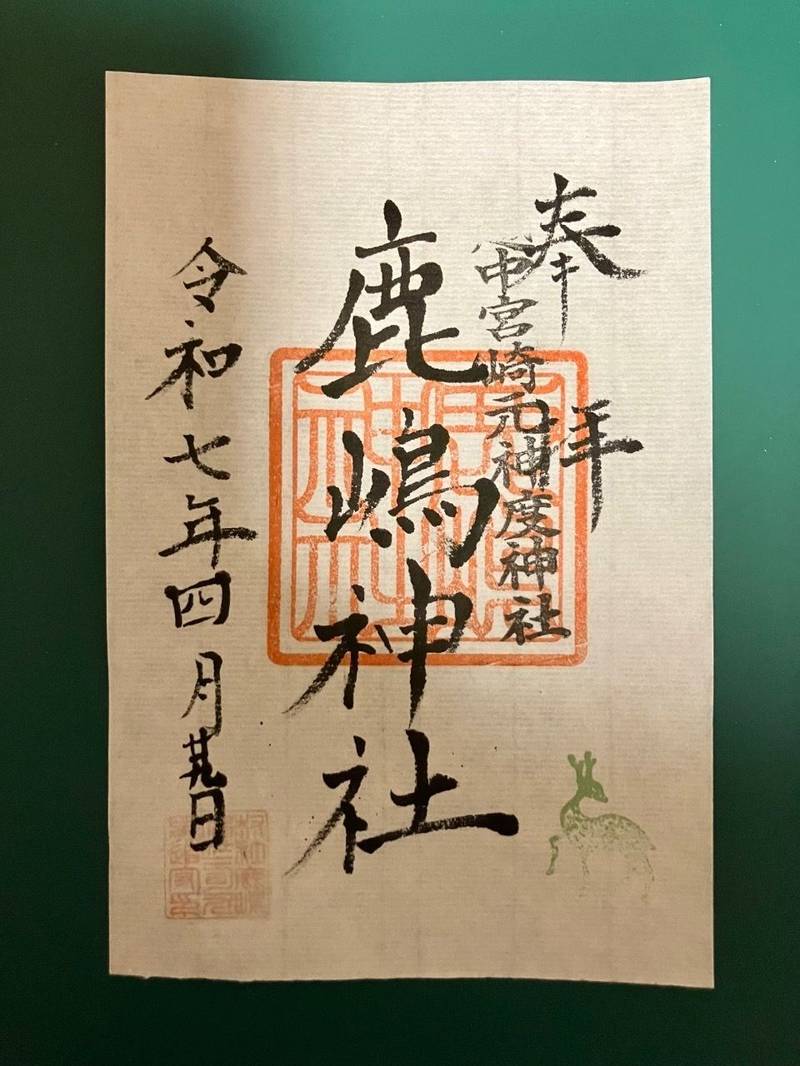 奉拝
越中宮崎元神度神社
鹿嶋神社
令和七年四月廿九日